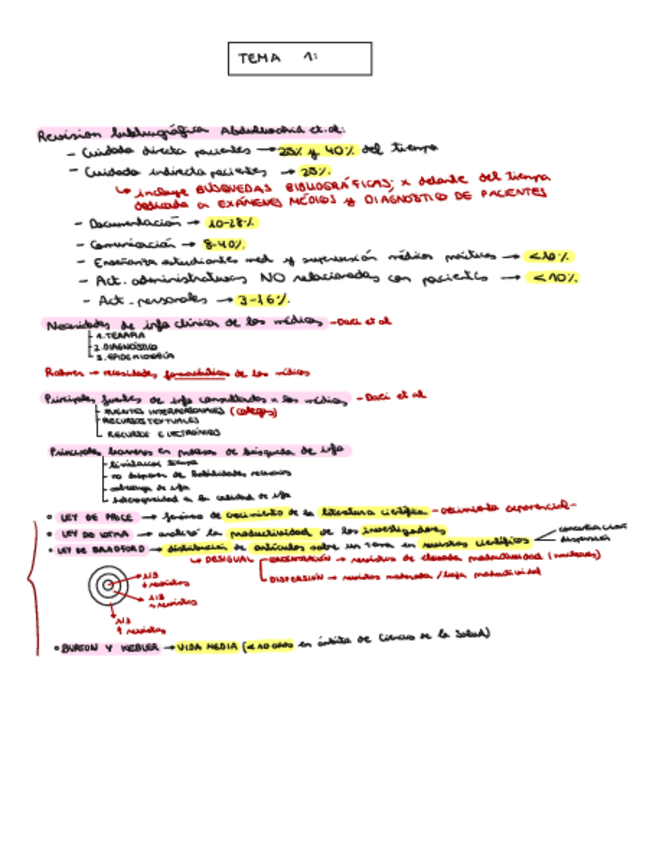 TEMA 1:
Revision bibliográfica Abdulwadud et.al:
- Cuidado directo pacientes → 25% y 40% del tiempo
- Cuidado indirecto pacientes → 25%.
↳ incluye BÚSQUEDAS BIBLIOGRÁFICAS; x delante del tiempo
dedicado a EXÁMENES MÉDICOS y DIAGNOSTICO DE PACIENTES
- Documentación → 10-28%
- Comunicación → 8-40%.
- Enseñanza estudiantes med y supervisión médicos → <10%
- Act. administrativas NO relacionadas con pacientes → <10%
- Act. personales → 3-16%.
Necesidades de info clínica de los médicos - Daei et al
1. TERAPIA
2. DIAGNÓSTICO
3. EPIDEMIOLOGÍA
→ necesidades de los médicos
Principales fuentes de info consultadas x los médicos - Daei et al
FUENTES INTERPERSONALES (colegas)
RECURSOS TEXTUALES
RECURSOS ELECTRÓNICOS
Principales barreras en proceso de búsqueda de info
limitación tiempo
no disponer de habilidades necesarias
sobrecarga de info
heterogeneidad en la calidad de info
• LEY DE PRICE → de crecimiento de la literatura científica - crecimiento exponencial -
• LEY DE LOTKA → analizó la productividad de los investigadores
• LEY DE BRADFORD → distribución de artículos sobre un tema en revistas científicas
concentración
dispersión
↳ DESIGUAL
CONCENTRACIÓN → revistas de elevada productividad (nucleares)
DISPERSIÓN → revistas moderada / baja productividad
1/3
revistas
1/3
revistas
1/3
↑ revistas
• BURTON Y KEBLER → VIDA MEDIA (<10 años en ámbito de Ciencias de la Salud)